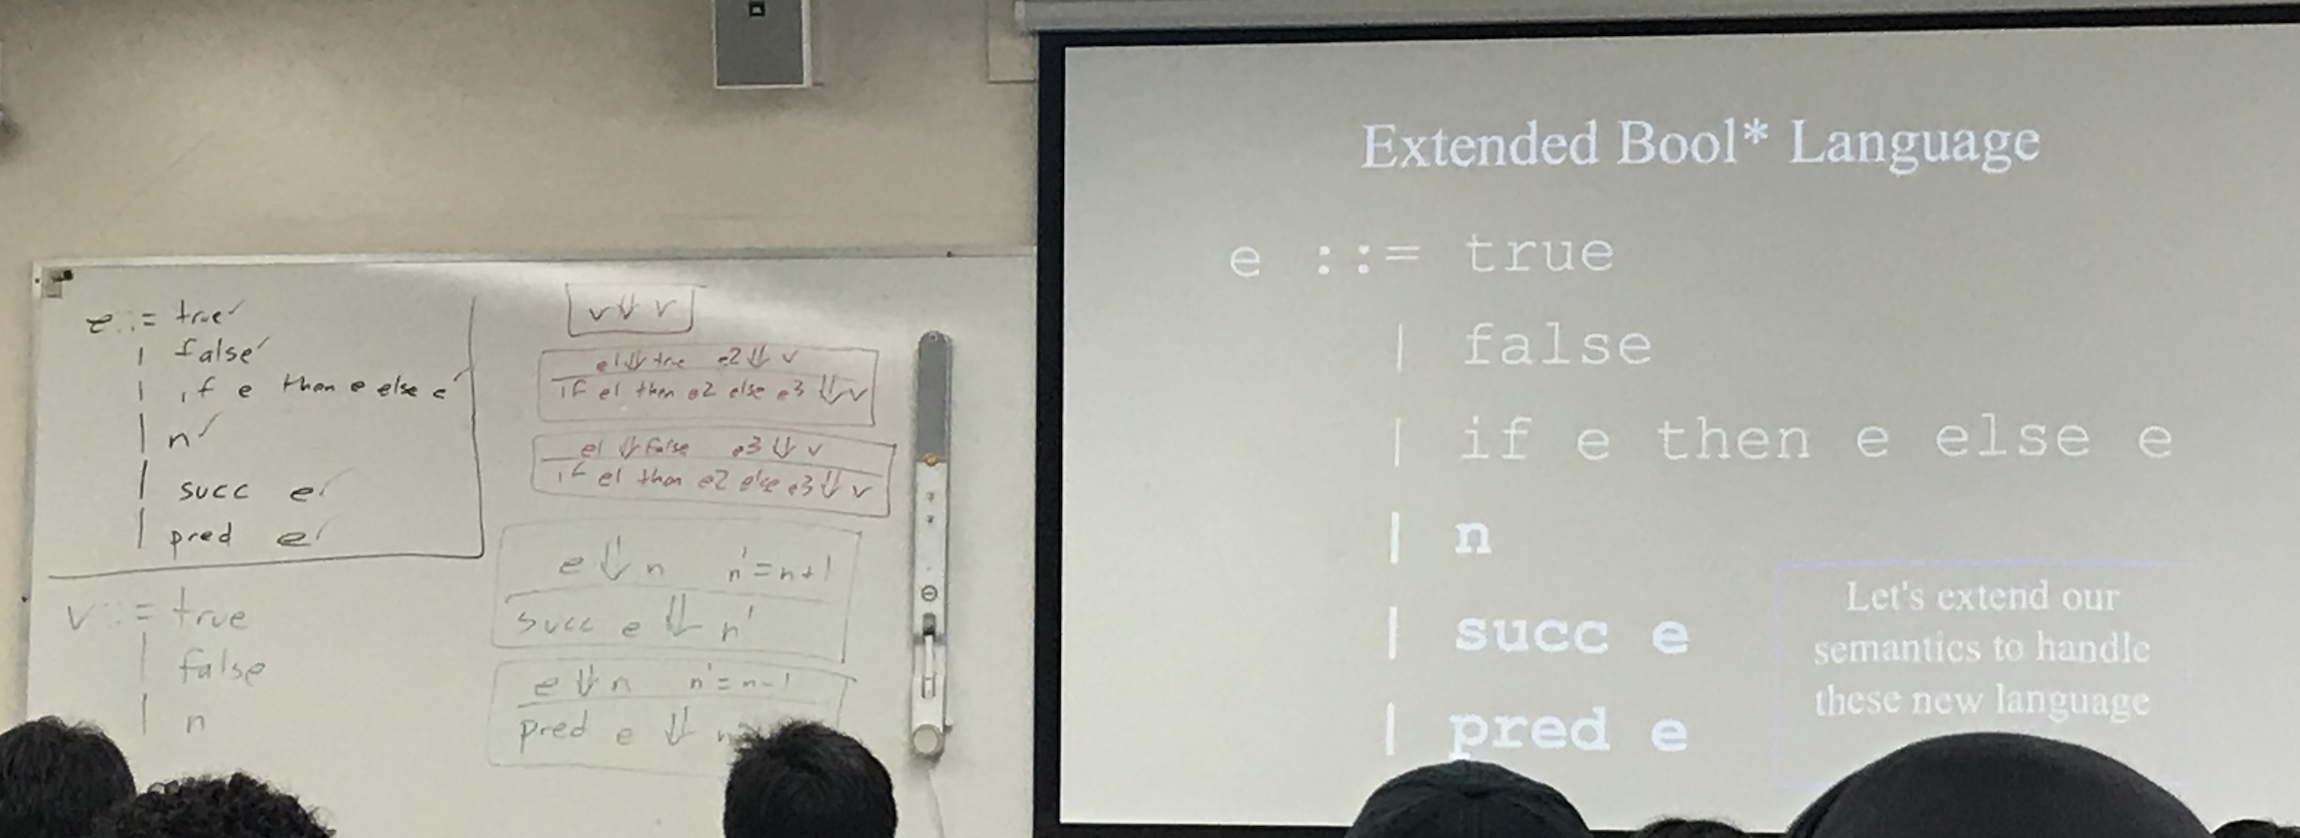 e ::= true ✓
| false ✓
| if e then e else e ✓
| n ✓
| succ e ✓
| pred e ✓
v ::= true
| false
| n
v ⇓ v
e1 ⇓ true e2 ⇓ v
if e1 then e2 else e3 ⇓ v
e1 ⇓ false e3 ⇓ v
if e1 then e2 else e3 ⇓ v
e ⇓ n n' = n+1
succ e ⇓ n'
e ⇓ n n' = n-1
pred e ⇓
Extended Bool* Language
e ::= true
| false
| if e then e else e
| n
| succ e
| pred e
Let's extend our
semantics to handle
these new language